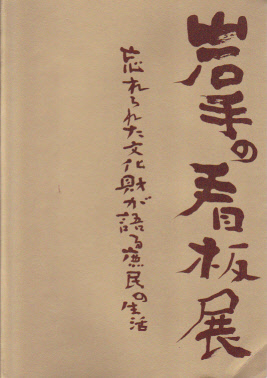 岩手の看板展
忘れられた文化財が語る庶民の生活